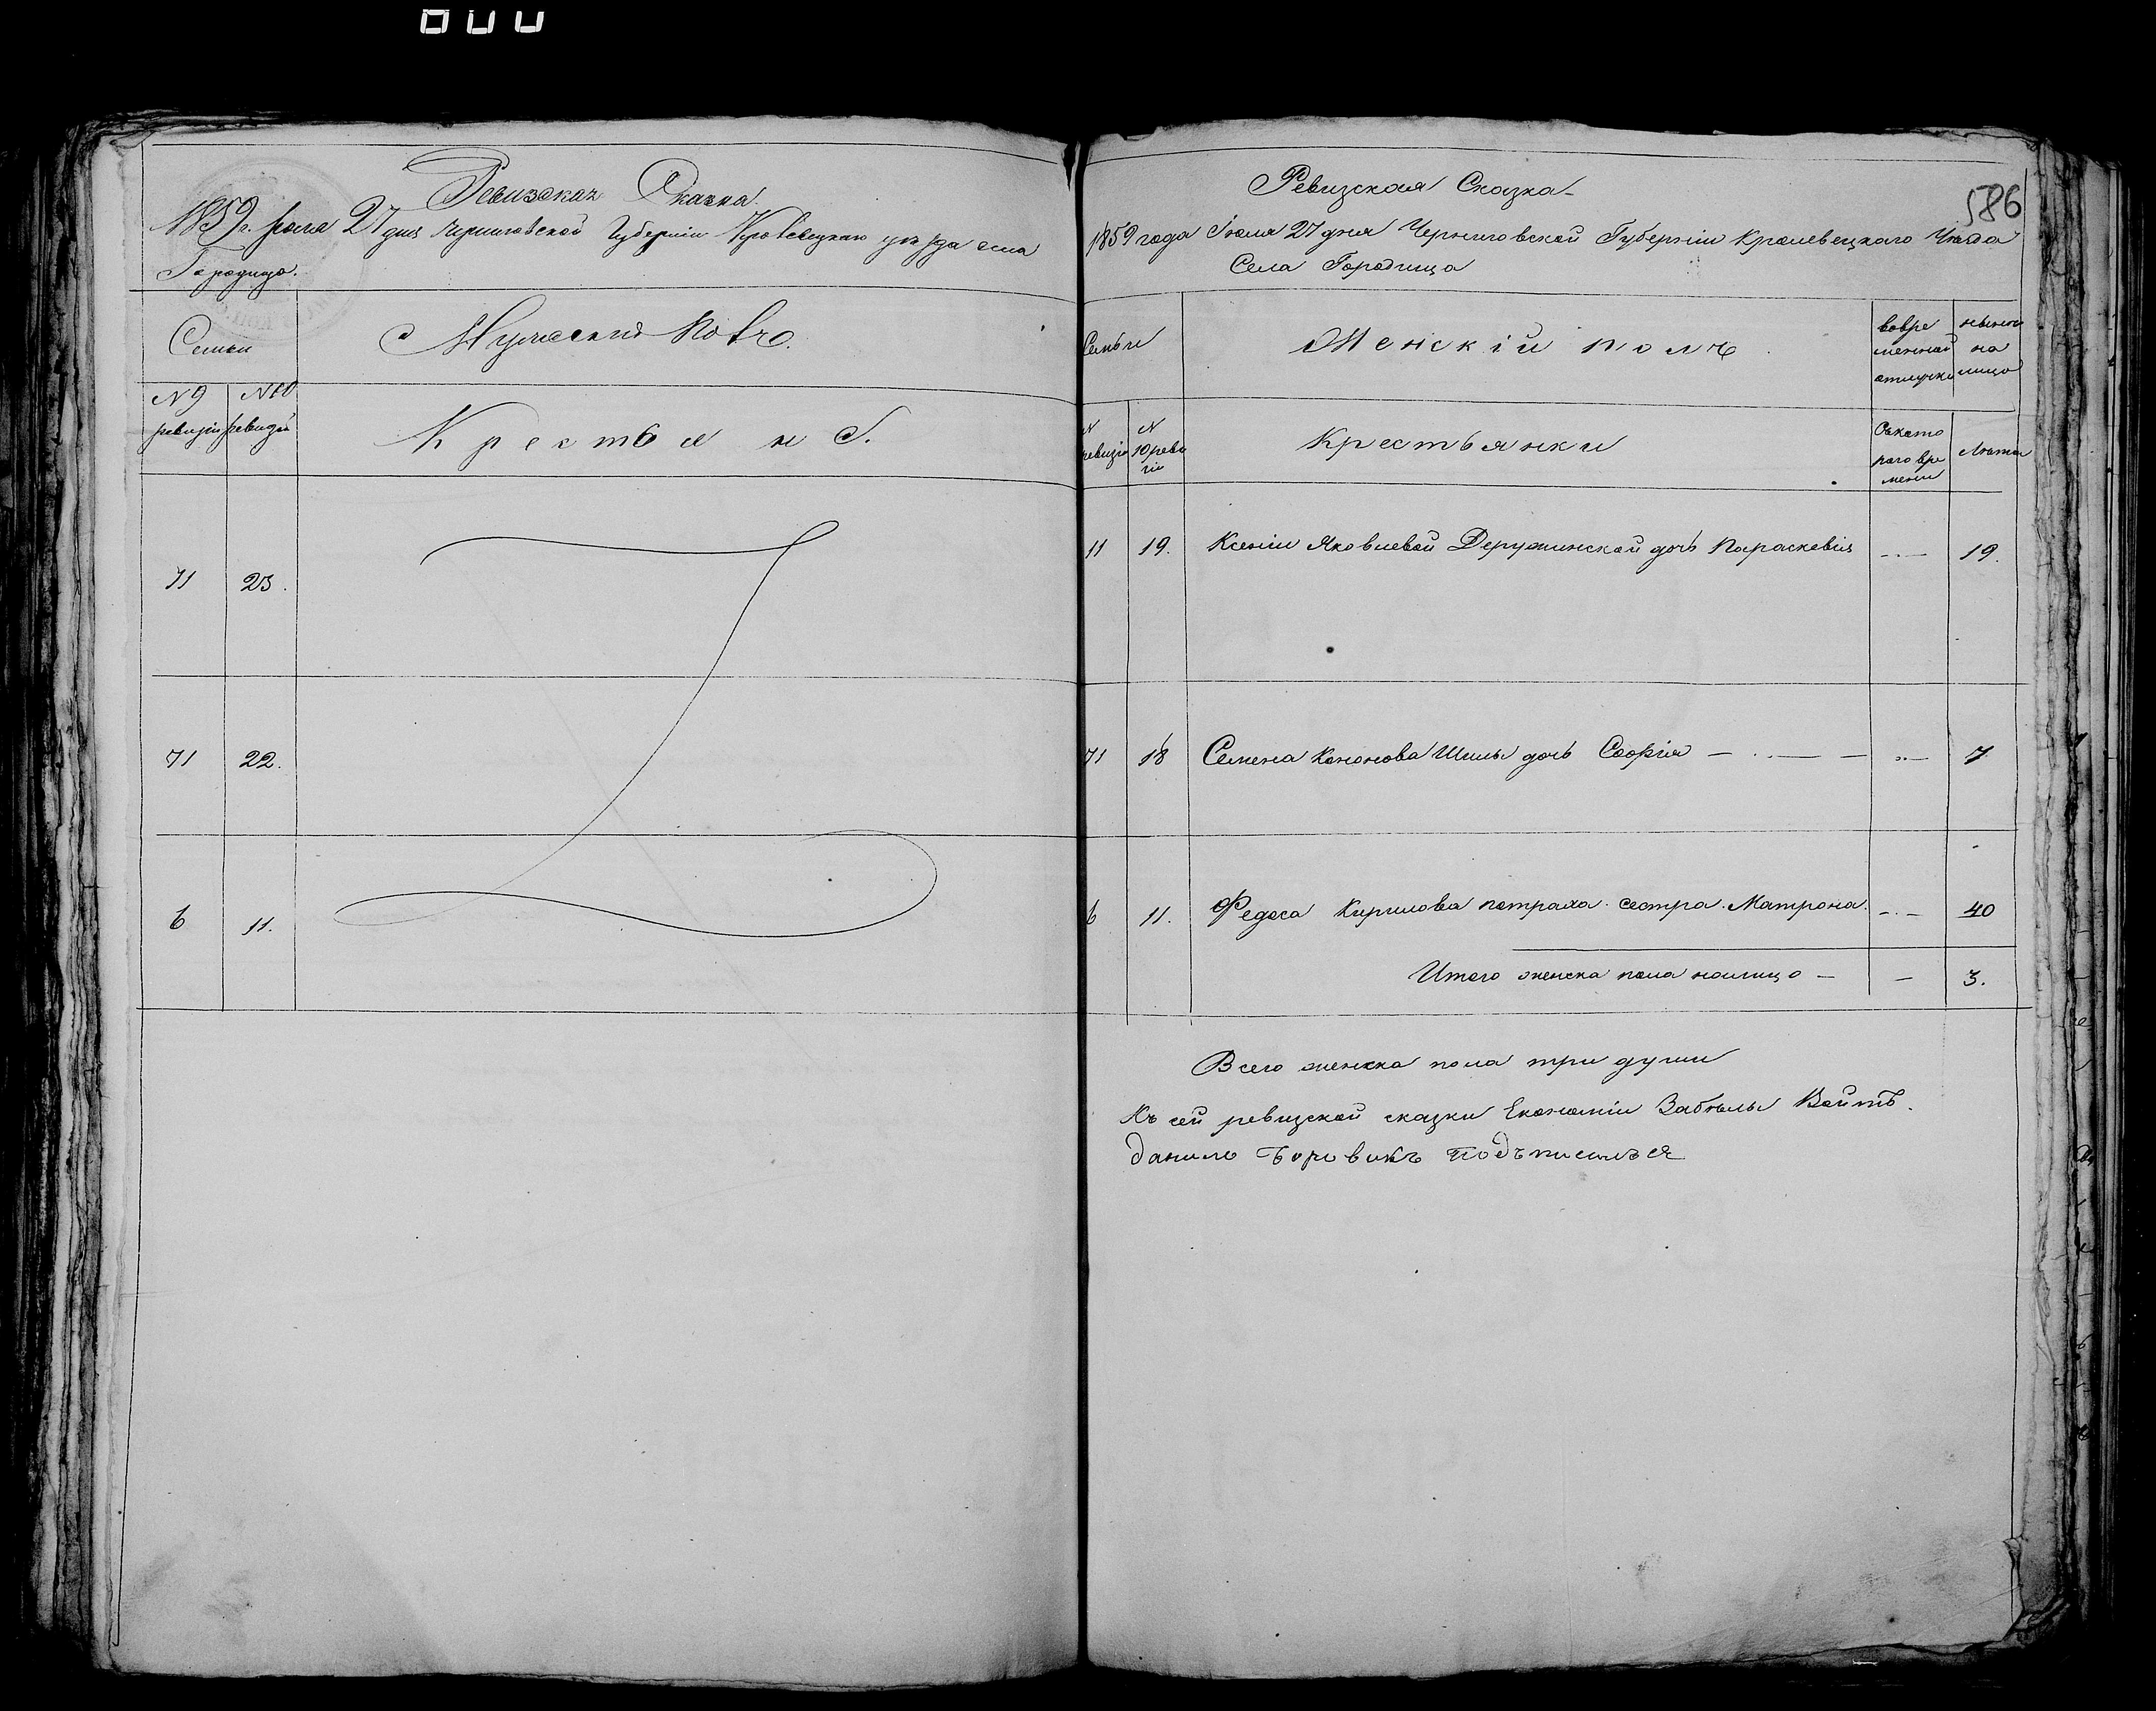 Ревизская Сказка.
1859 г. Іюля 27 дня Черниговской Губерніи Кролевецкаго уѣзда села
Городища.
Семьи
Мужескій Полъ.
N 9 ревизіи
N 10 ревизіи
Крестьяне.
71 23.
71 22.
6 11.
586
Ревизская Сказка
1859 года Іюля 27 дня Черниговской Губерніи Кролевецкаго Уѣзда
Села Городища
Семьи
Женскій полъ
вовре
менной
отлучки
нынѣ
на
лицо
N
ревизіи
N
10 реви
зіи
Крестьянки
Съкото
раго вре
мени
Лѣта
11 19. Ксеніи Яковлевой Деружинской дочь Параскевія 19.
71 18 Семена Кононова Шилы дочь Софія 7
6 11. Федоса Кирилова петраха. сестра. Матрона. 40
Итого женска пола налицо — — 3.
Всего женска пола три души
Къ сей ревизской сказки Економіи Забѣлы Войтъ.
данило Боровикъ подъписался